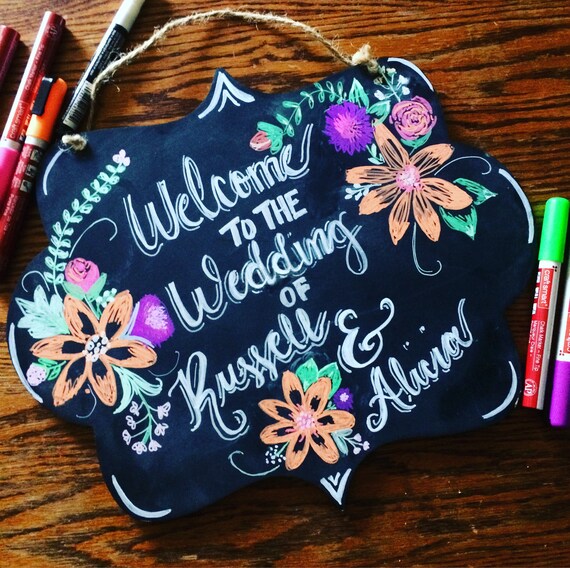 Welcome
TO THE
Wedding
OF
Russell &
Alicia